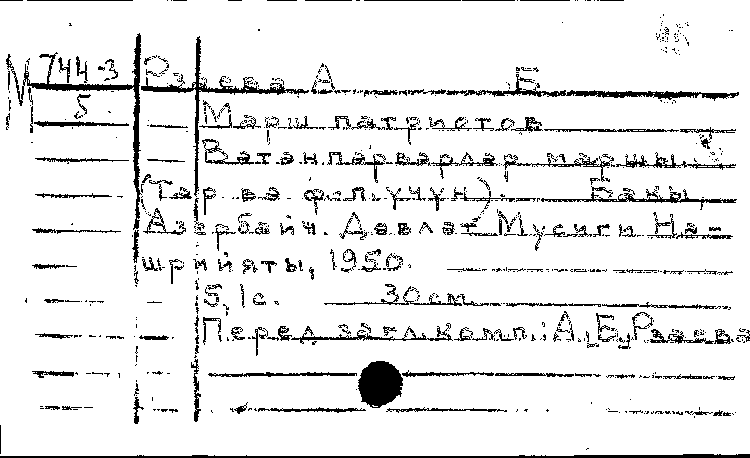 М 744-3 Рзаева А Б
5.
Марш патриотов
Ватанпарварлар маршы.
(Тар ва ф-п. учун). Бакы,
Азербайч. Давлат Мусиги На-
шрийяты, 1950.
5, 1 с. 30 см
Перед загл. комп.: А. Б. Рзаева